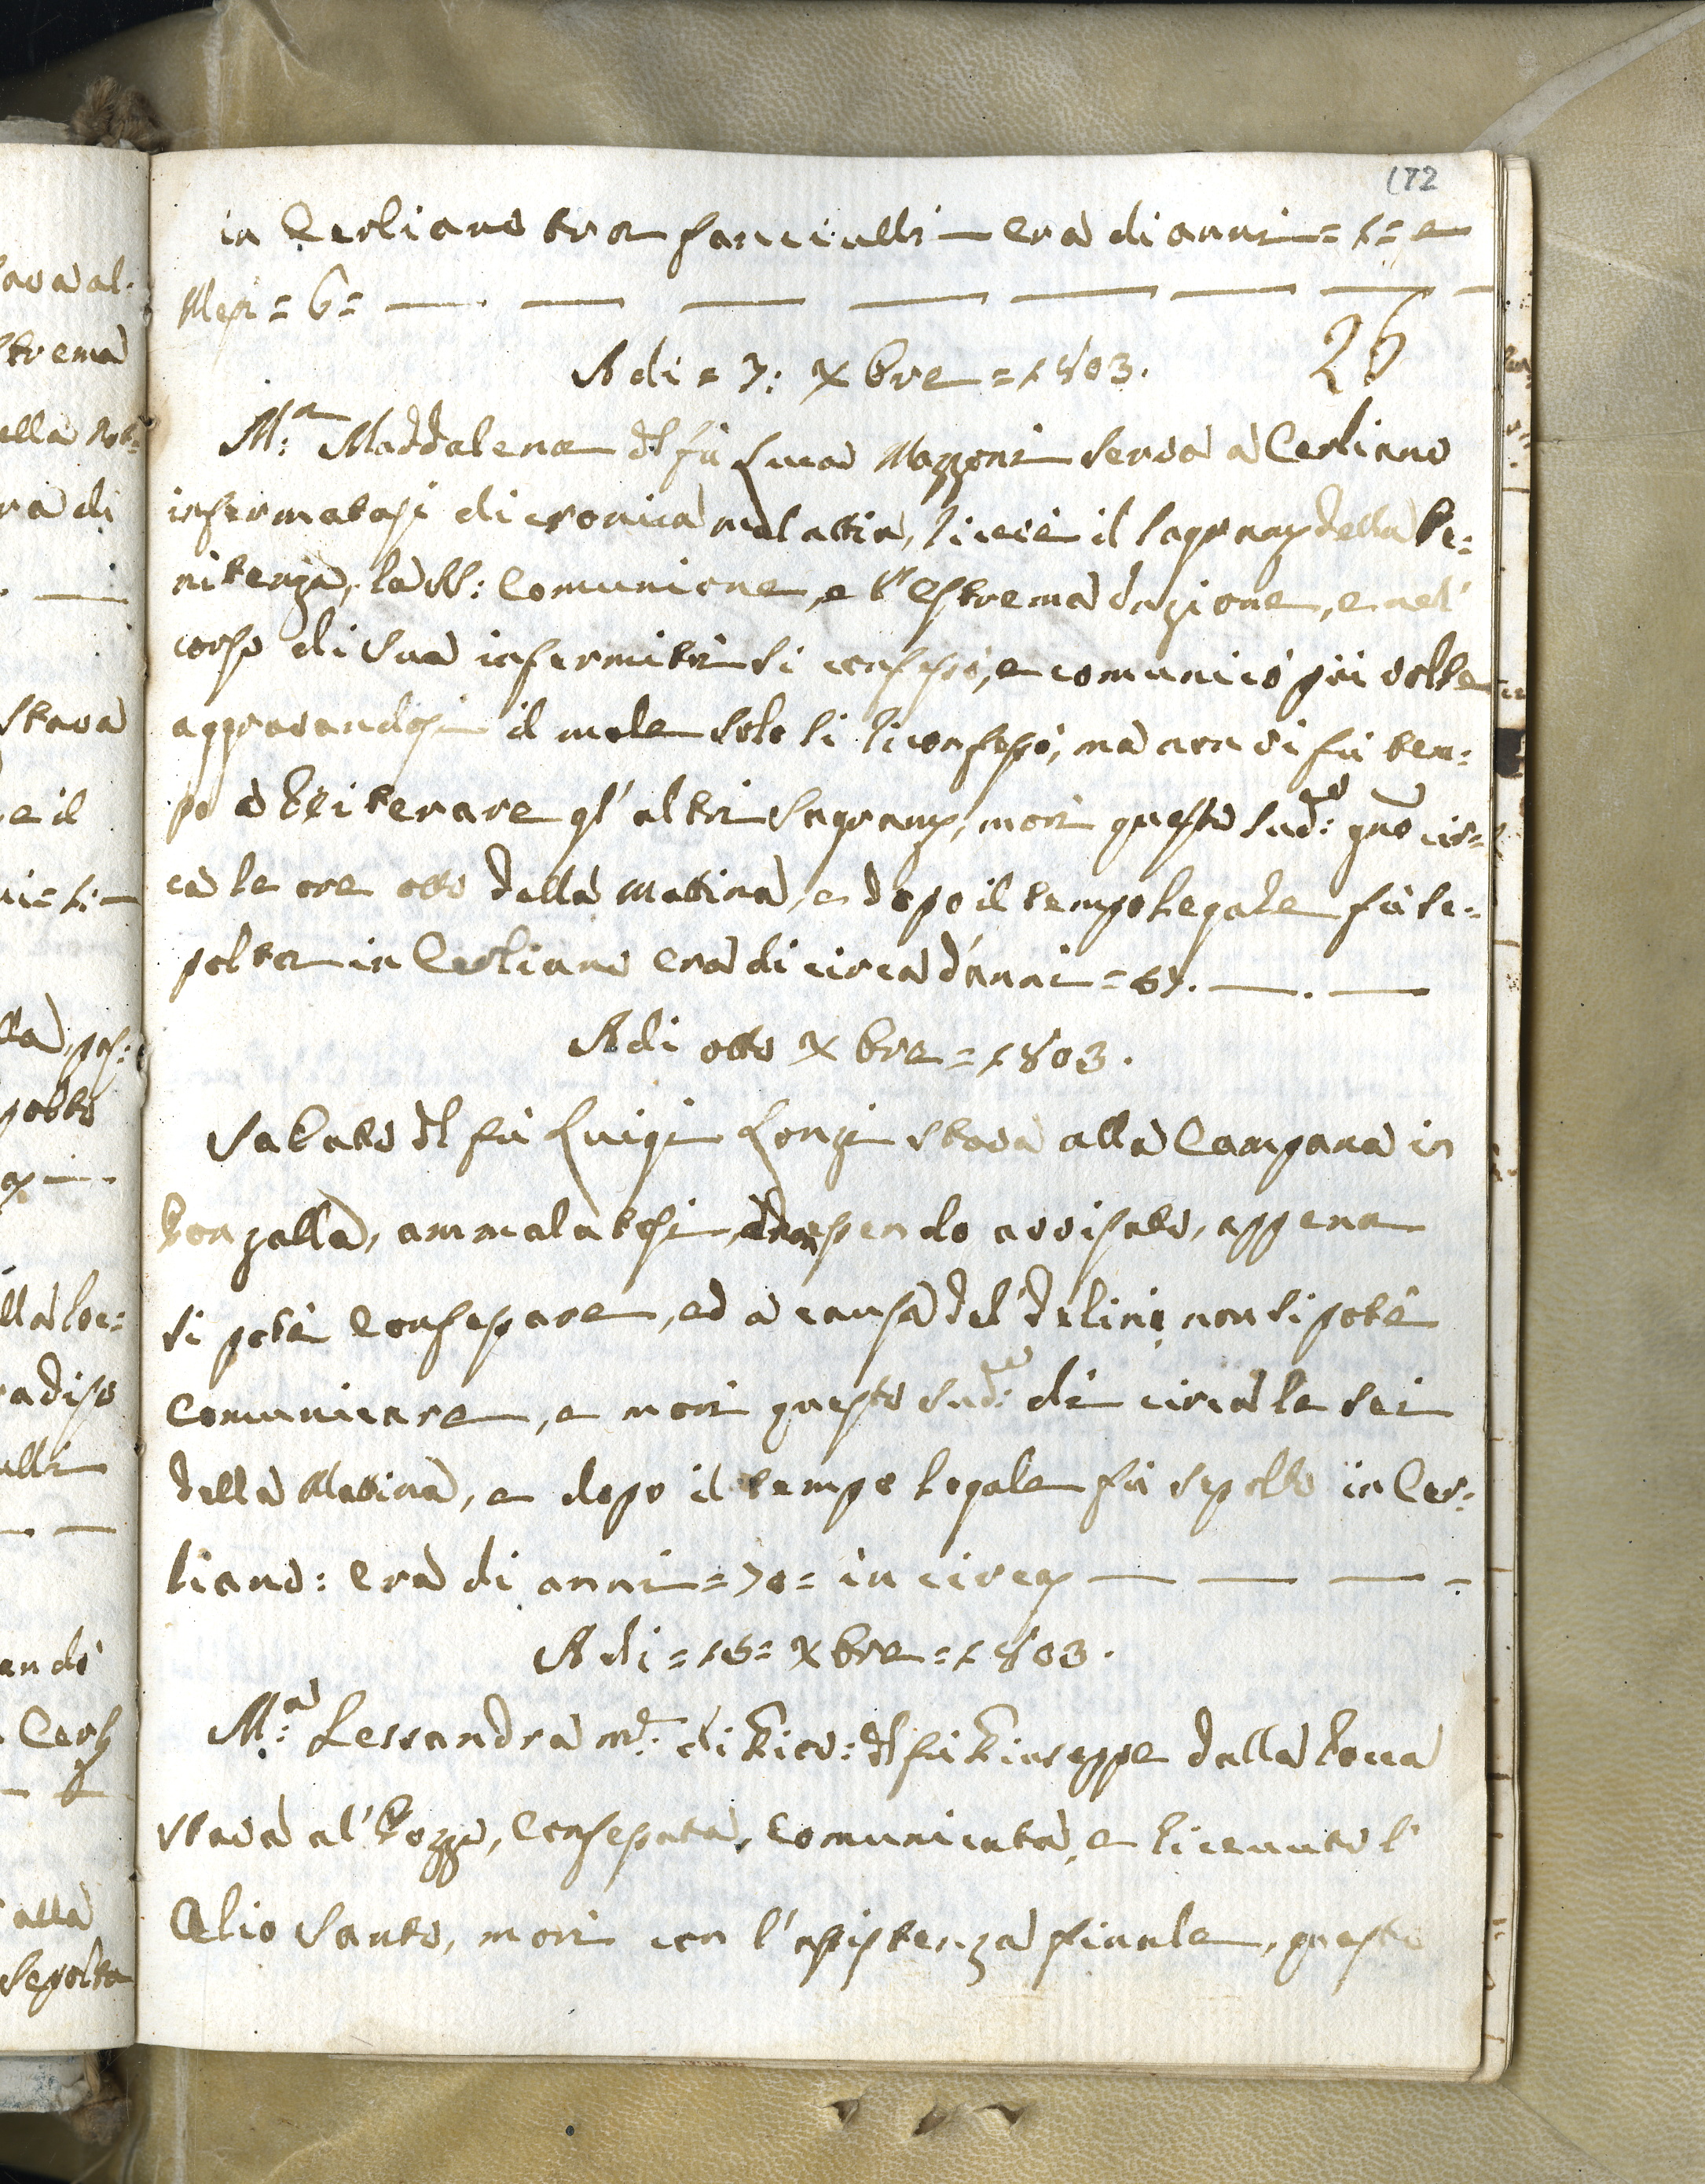 172
in Cerliano tra fanciulli era di anni = 1 = e
Mesi = 6 =
26
A di = 7: Xbre = 1803.
M:ª Maddalena dl fù Luca Mazzoni serva a Cerliano
infermatasi di cronica malattia, ricevè il sagram della Pe=
nitenza, la SS: Comunione, e l'Estrema Unzione, e nel'
corso di sua infermità si confessò, e comunicò più volte
aggravandosi il male solo si riconfessò, ma non vi fù tem=
po a Reiterare gl'altri Sagram, morì questo sud:º gno cir=
ca le ore otto della Mattina, e dopo il tempo Legale fù se=
polta in Cerliano era di circa d'anni = 67.
A di otto Xbre = 1803.
Sabato dl fù Luigi Lonzi stava alla Campana in
Ronzalla, ammalatosi, essendo avvisato, appena
si potè Confessare, ed a causa del' delirio non si potè
Comunicare, e morì questo sud:º dì circa le sei
della Mattina, e dopo il tempo Legale fù sepolto in Cer=
liano: era di anni = 70 = in circa
A di = 15 = Xbre = 1803.
M:ª Lessandra md: di Nico: dl fù Giuseppe dalla Rocca
stava al' Pozzo, Confessata, Comunicata, e ricevuto l'
Olio Santo, morì con l'assistenza finale, questo